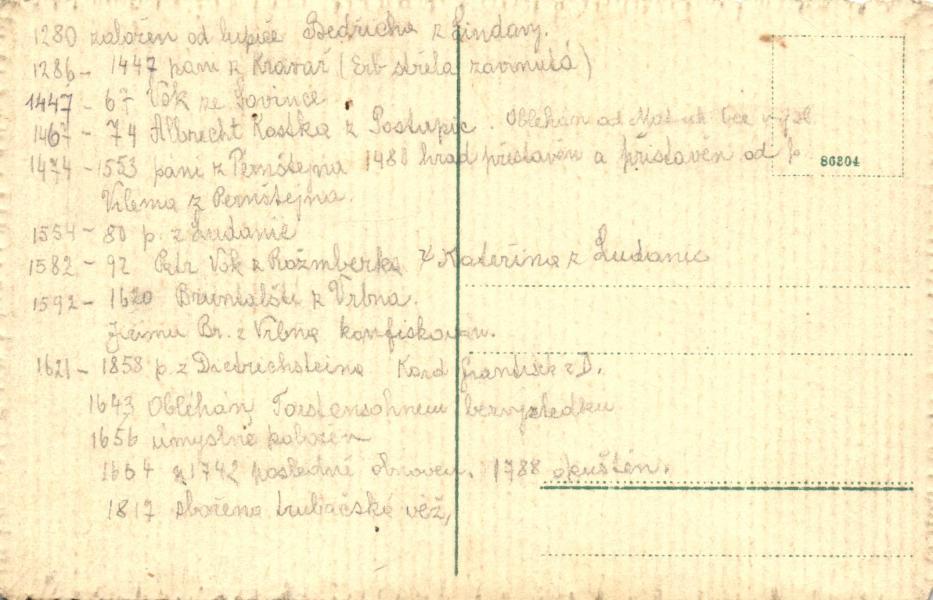 1280 založen od lupiče Bedřicha z Lindavy.
1286 – 1447 páni z Kravař (Erb střela zavinutá)
1447 – 67 Vok ze Sovince
1467 – 74 Albrecht Kostka z Postupic. Obléhán od
1474 – 1553 páni z Pernštejna 1480 hrad přistavěn a přistavěn od p.
Viléma z Pernštejna.
1554 – 80 p. z Ludanic
1582 – 92 Petr Vok z Rožmberka Kateřina z Ludanic
1592 – 1620 Bruntálští z Vrbna.
Jiřímu Br. z Vrbna konfiskován.
1621 – 1858 p. z Dietrichsteina Kard František z D.
1643 Obléhán Torstensohnem bezvýsledku
1656 úmyslně pobořen
1664 1742 posledně obnoven. 1788 opuštěn.
1817 zbořena trubačská věž,
86804